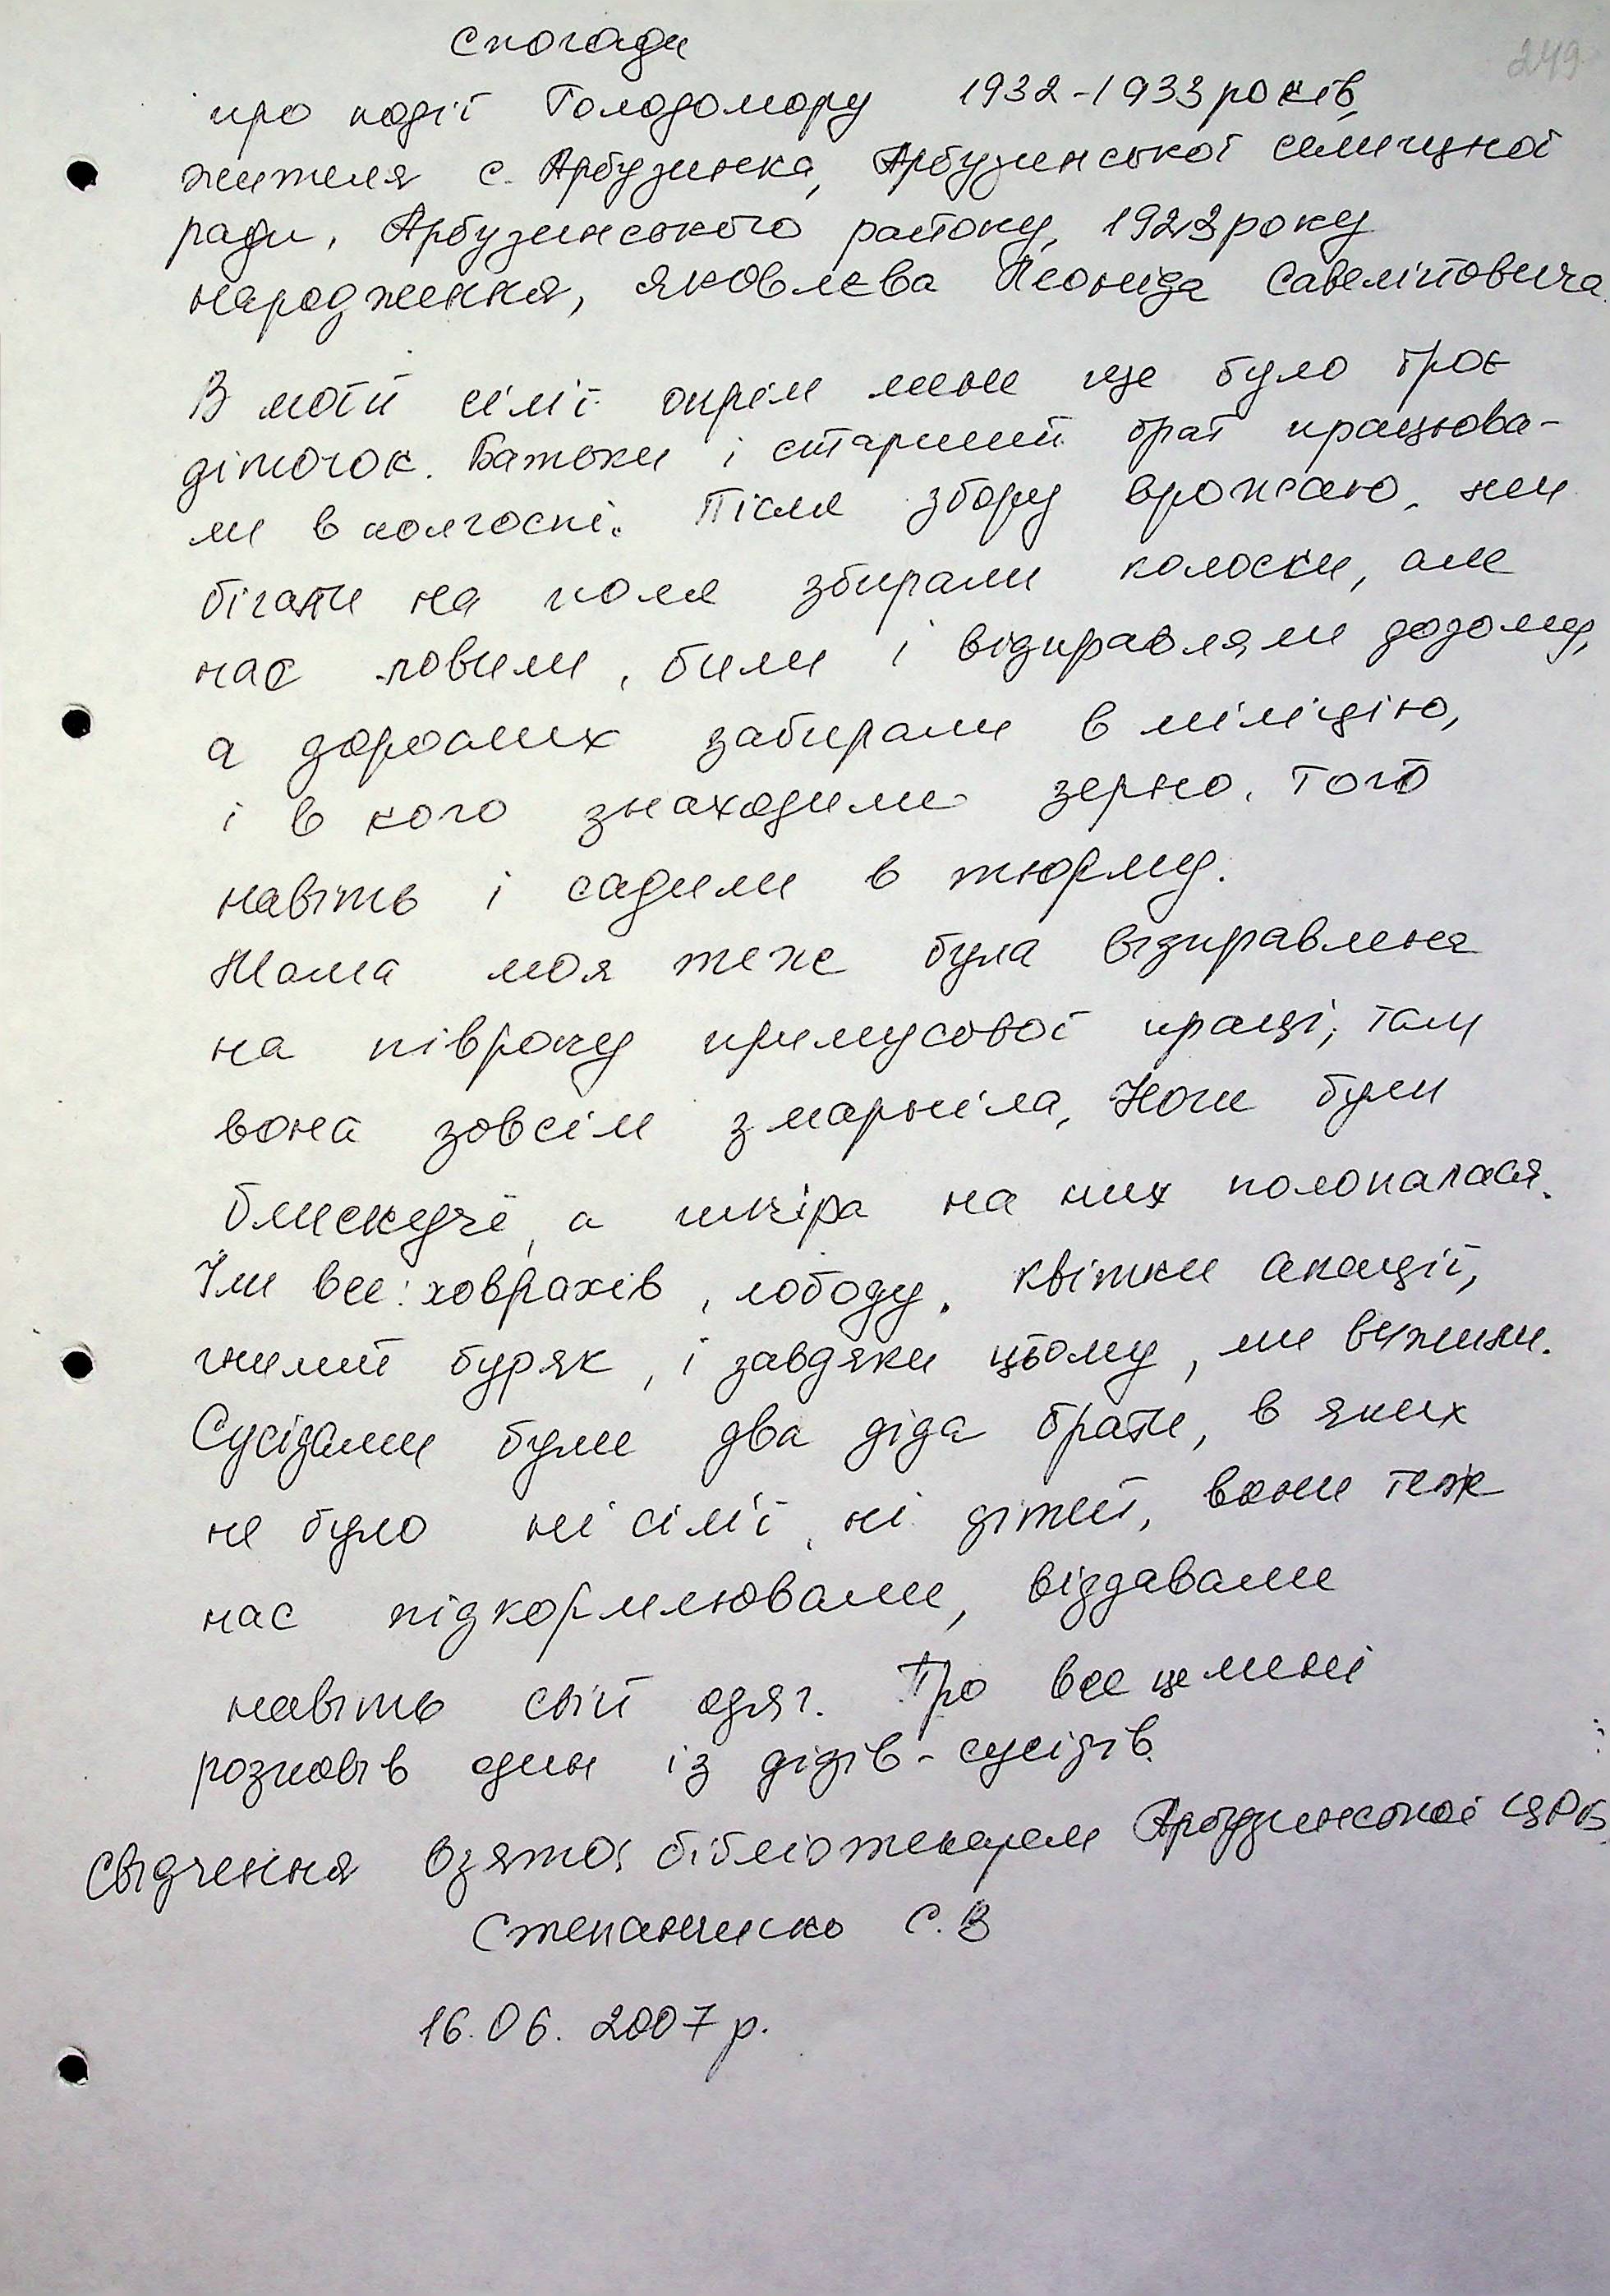 249
Спогади
про події Голодомору 1932-1933 років,
жителя с. Арбузинка, Арбузинської селищної
ради, Арбузинського району, 1923 року
народження, Яковлєва Леоніда Савелійовича.
В моїй сім'ї окрім мене ще було троє
діточок. Батьки і старший брат працюва-
ли в колгоспі. Після збору врожаю, ми
бігали на поля збирали колоски, але
нас ловили, били і відправляли додому,
а дорослих забирали в міліцію,
і в кого знаходили зерно, того
навіть і садили в тюрму.
Мама моя теж була відправлена
на півроку примусової праці, там
вона зовсім змарніла, Ноги були
блискучі, а шкіра на них полопалася.
Їли все: ховрахів, лободу, квітки акації,
гнилий буряк, і завдяки цьому, ми вижили.
Сусідами були два діда брати, в яких
не було ні сім'ї, ні дітей, вони теж
нас підкормлювали, віддавали
навіть свій одяг. Про все це мені
розповів один із дідів-сусідів.
Свідчення взято бібліотекарем Арбузинської ЦРБ
С.В
16.06.2007 р.